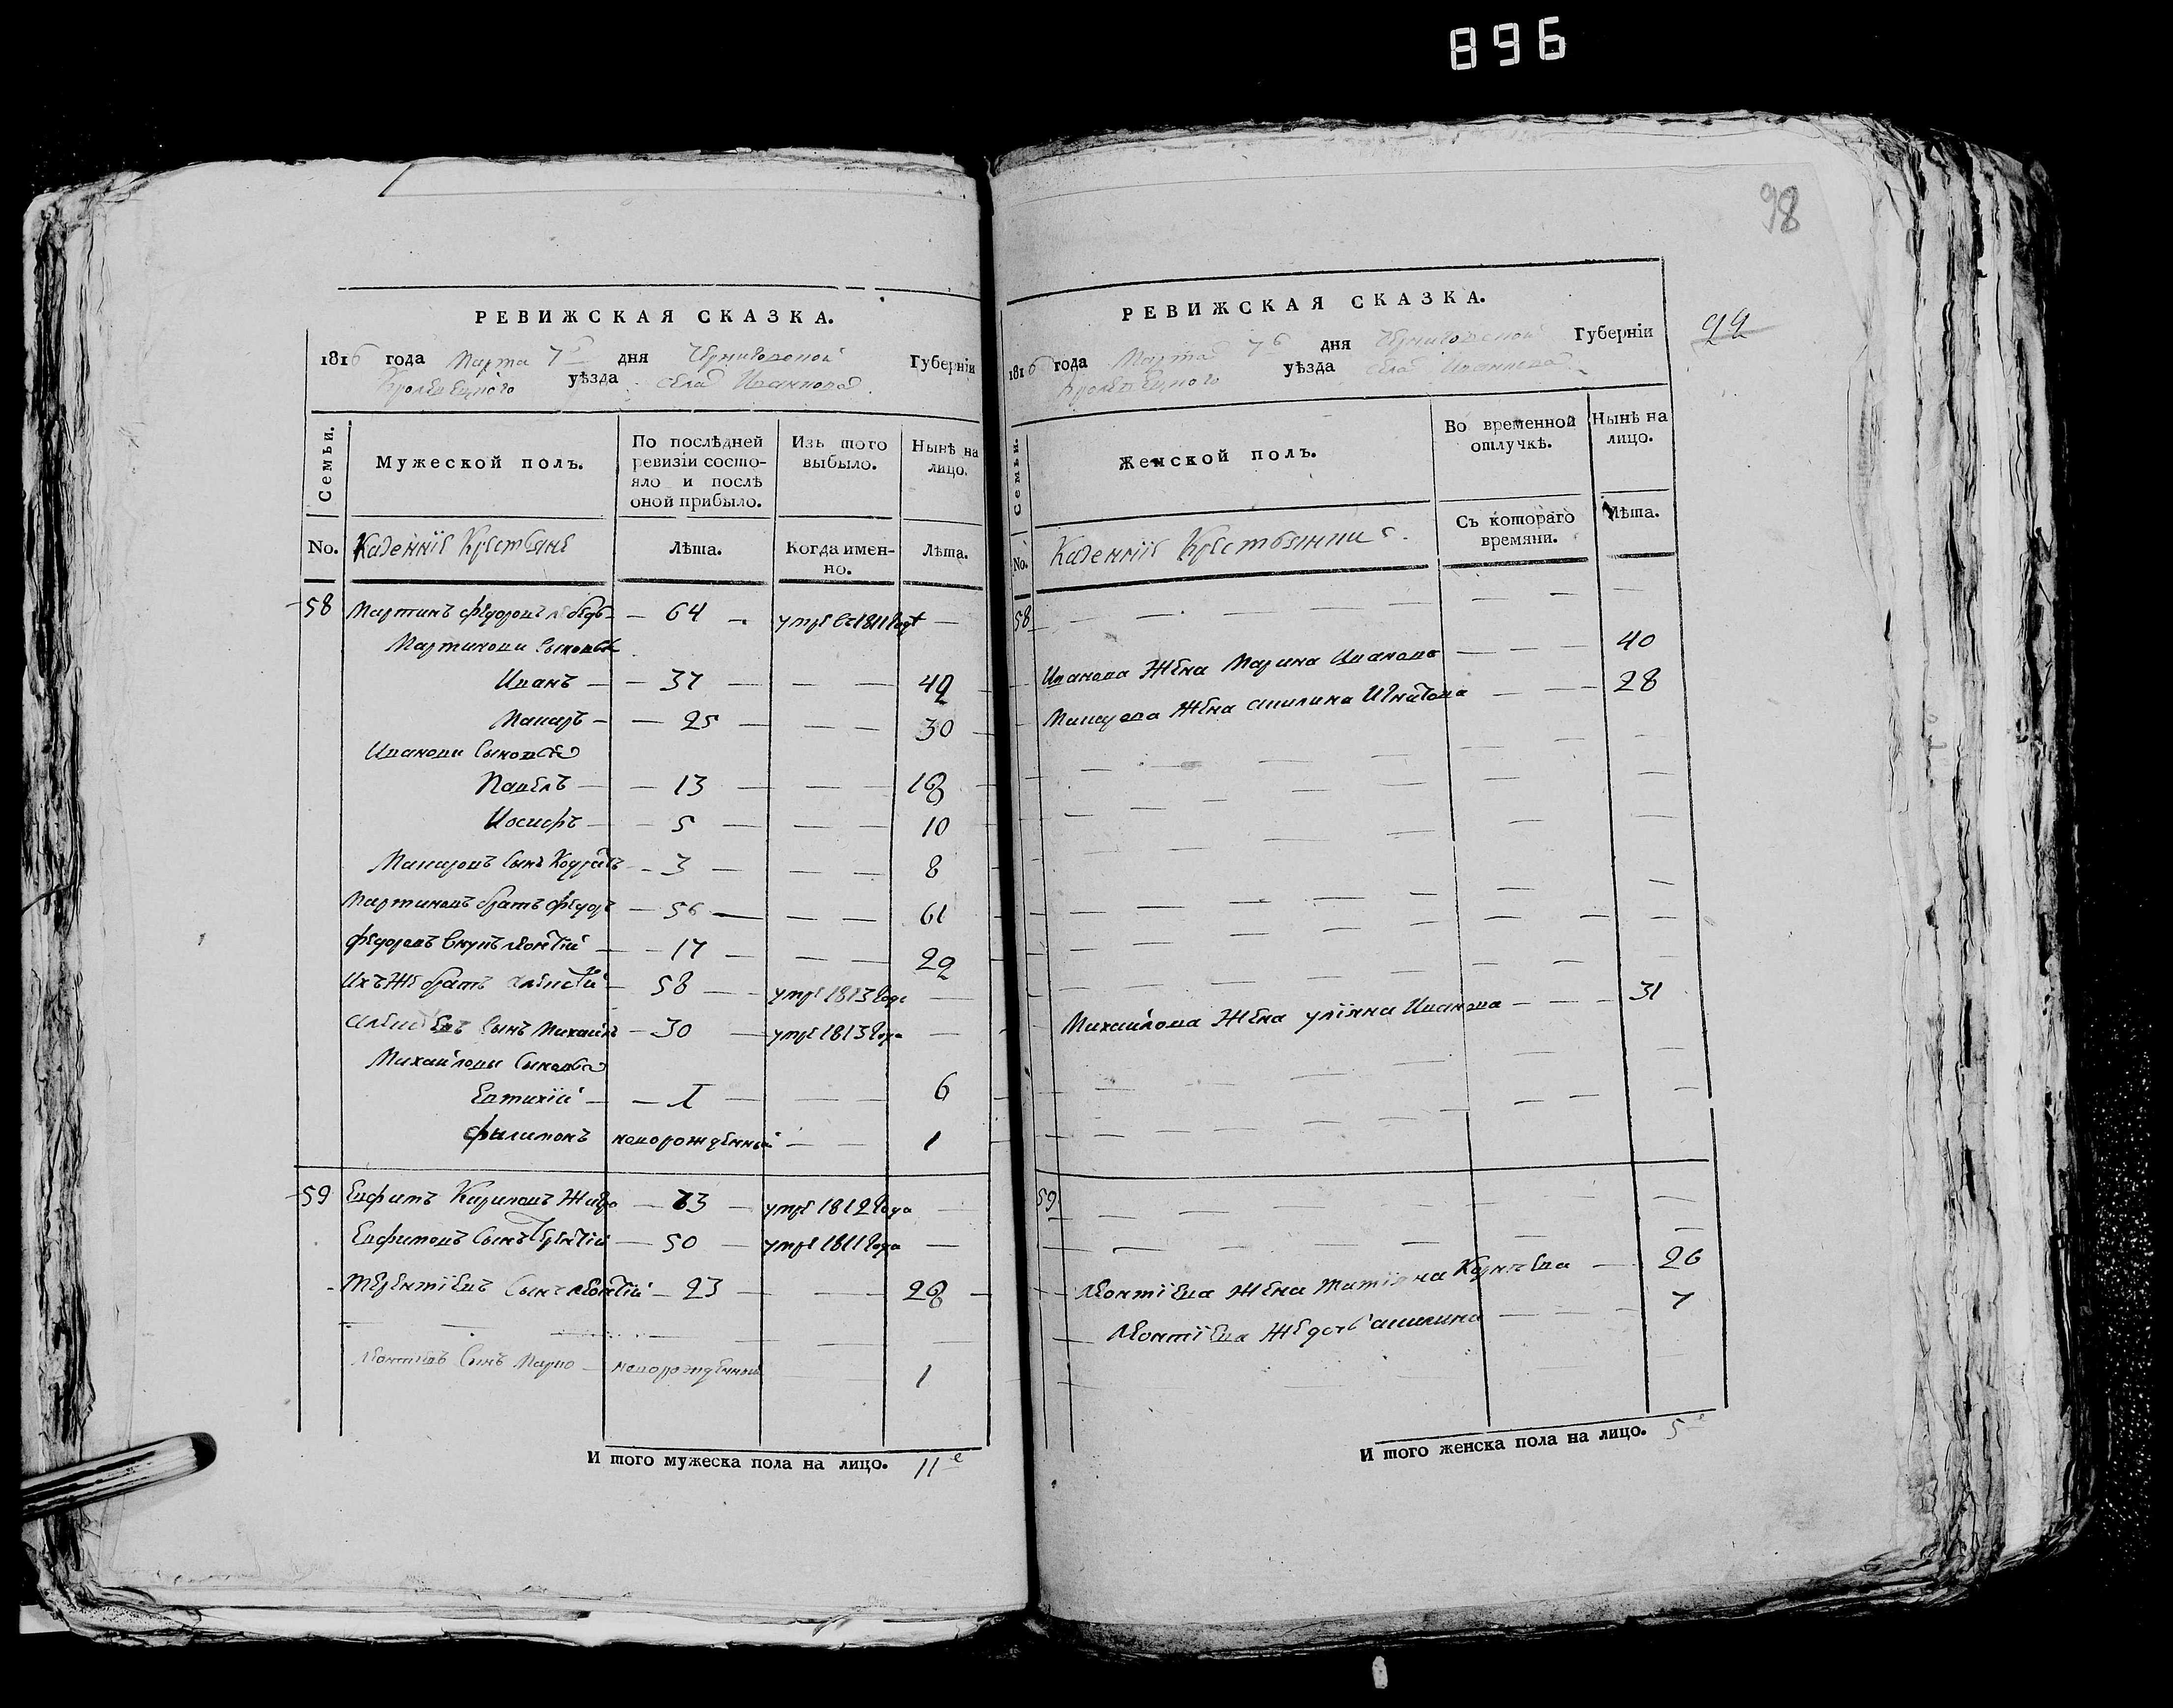 896
98
99
РЕВИЖСКАЯ СКАЗКА.
1816 года Марта 7 дня Черниговской Губернїи
Кролевецкого уѣзда села Иванкова
Семьи.
Мужеской полъ.
По послѣдней ревизїи состояло и послѣ оной прибыло.
Изъ того выбыло.
Нынѣ на лицо.
No. Казеннїе Крестьяне
Лѣта.
Когда именно.
Лѣта.
58 Мартинъ Федоровъ — 64 — умре въ 1811 году —
Мартинови Сыновья
Иванъ — 37 — — — 42
Макаръ — 25 — — — 30
Иванови Сыновья
Павелъ — 13 — — — 18
Иосифъ — 5 — — — 10
Макаровъ Сынъ Кодратъ — 3 — — — 8
Мартиновъ братъ Федоръ — 56 — — — 61
Федоровъ Внукъ Леонтїй — 17 — — — 22
Ихъ же братъ Алексѣй — 58 — умре 1813 года —
Алексѣевъ Сынъ Михайло — 30 — умре 1813 года —
Михайловы Сыновья
Евтихїй — 1 — — — 6
Филимонъ новорожденный — — 1
59 Евфимъ Кириловъ — 73 — умре 1812 года —
Евфимовъ Сынъ Терентїй — 50 — умре 1811 года —
Терентїевъ Сынъ Леонтїй — 23 — — — 28
Леонтїевъ Сынъ Марко — новорожденный — 1
И того мужеска пола на лицо. 11 е
РЕВИЖСКАЯ СКАЗКА.
1816 года Марта 7 дня Черниговской Губернїи
Кролевецкого уѣзда села Иванкова
Семьи.
Женской полъ.
Во временной отлучкѣ.
Нынѣ на лицо.
No. Казеннїе Крестьянки
Съ котораго времяни.
Лѣта.
58
Иванова Жена Марина Иванова — — — 40
Макарова Жена Акилина Игнатова — — — 28
Михайлова Жена Улїяна Иванова — — — 31
59
Леонтїева Жена Татїяна Корнѣева — 26
Леонтїева Же дочь Акилина — — — 7
И того женска пола на лицо. 5